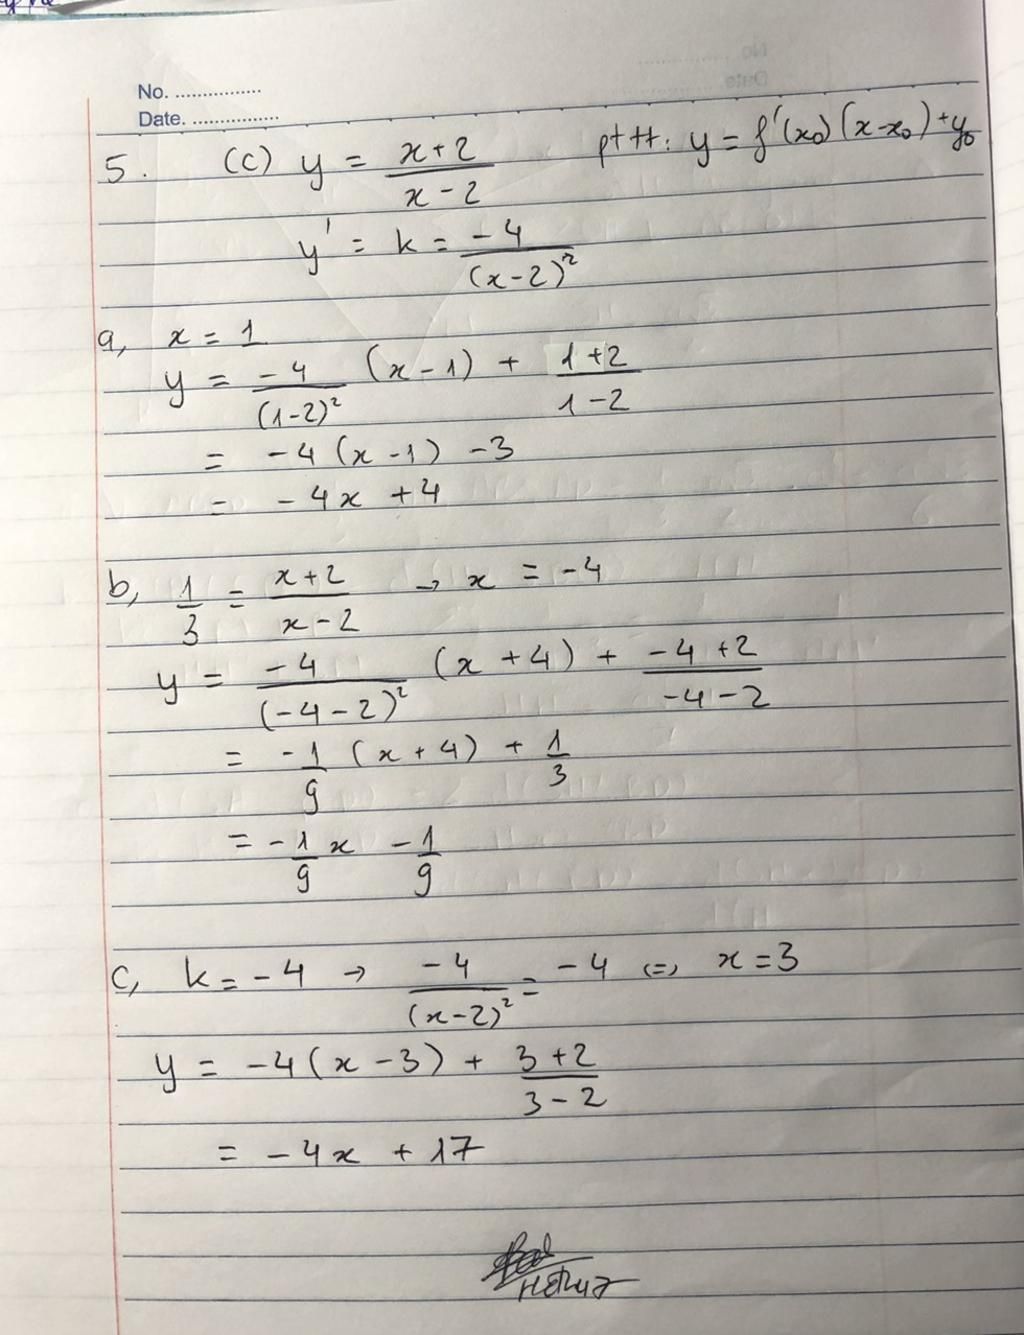 No. ................
Date. ................
5. (C) y = x+2 / x-2 pt tt: y = f'(x₀)(x-x₀)+y₀
y' = k = -4 / (x-2)²
a, x = 1
y = -4 / (1-2)² (x-1) + 1+2 / 1-2
= -4(x-1) -3
= -4x +4
b, 1/3 = x+2 / x-2 → x = -4
y = -4 / (-4-2)² (x+4) + -4+2 / -4-2
= -1/9 (x+4) + 1/3
= -1/9 x -1/9
c, k = -4 → -4 / (x-2)² = -4 (=) x = 3
y = -4(x-3) + 3+2 / 3-2
= -4x + 17